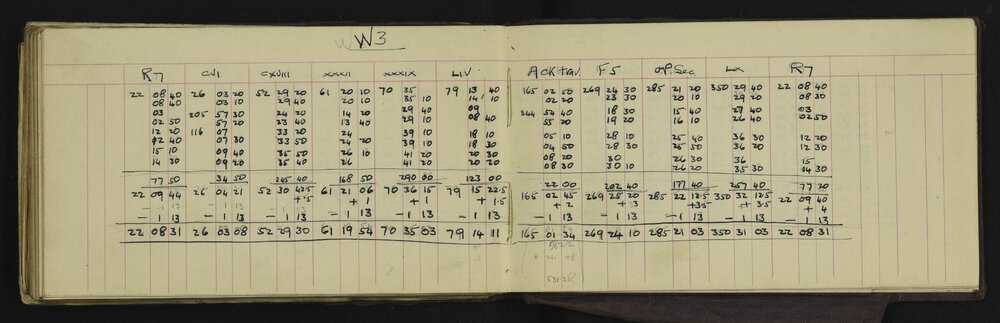 W W3
R7 CVI CXVIII XXXII XXXIX LIV ACK TRV. F5 O.P. Sec. LX R7
22 08 40 26 03 20 52 29 20 61 20 10 70 35 79 13 40 165 02 50 269 24 30 285 21 20 350 29 40 22 08 40
08 40 03 10 29 40 20 10 35 10 14 10 02 20 23 30 20 30 29 20 08 30
03 205 57 30 24 20 14 20 29 40 09 344 54 40 18 30 15 40 27 40 03
02 50 57 20 23 40 13 40 29 10 08 40 55 20 19 20 16 10 26 40 02 50
12 20 116 07 33 20 24 39 10 18 10 05 10 28 10 25 40 36 30 12 20
12 40 07 30 33 50 24 20 39 10 18 30 04 50 28 30 25 50 36 20 12 30
15 10 09 40 35 50 26 10 41 20 20 30 08 20 30 26 30 36 15
14 30 09 20 35 40 26 41 20 20 30 08 30 30 10 26 20 35 30 14 30
77 50 34 50 245 40 168 50 290 00 123 00 22 00 202 40 177 40 257 40 77 20
22 09 44 26 04 21 52 30 42.5 61 21 06 70 36 15 79 15 22.5 165 02 45 269 25 20 285 22 12.5 350 32 12.5 22 09 40
+.5 +1 +1 +1.5 +2 +3 +3.5 +3.5 +4
-1 13 -1 13 -1 13 -1 13 -1 13 -1 13 -1 13 -1 13 -1 13 -1 13 -1 13
22 08 31 26 03 08 52 29 30 61 19 54 70 35 03 79 14 11 165 01 34 269 24 10 285 21 03 350 31 03 22 08 31